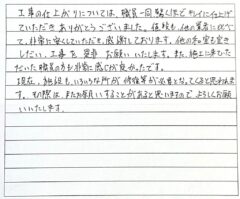 工事の仕上がりについては、職員一同驚くほどキレイに仕上げ
ていただきありがとうございました。価格も、他の業者に比べ
て、非常に安くしていただき、感謝しております。他の和室も空き
しだい、工事を是非お願いいたします。また、施工に来ていた
だいた職員の方も非常に感じが良かったです。
現在、施設もいろいろな所が修繕等が必要となってくると思われま
す。その際は、またお願いすることがあると思いますので よろしくお願
いいたします。